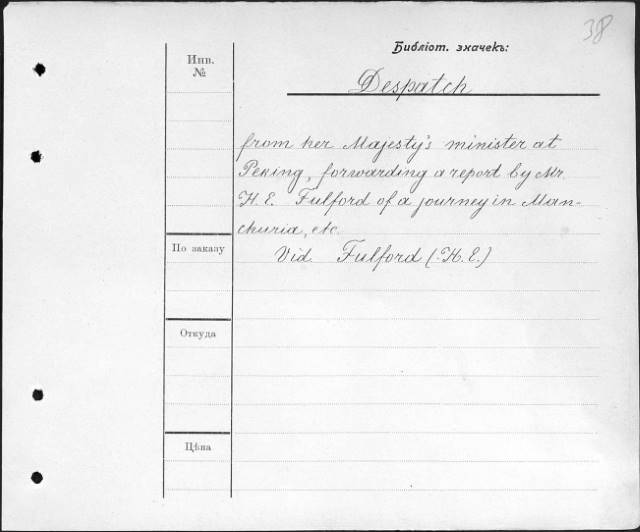 38
Библіот. значекъ:
Инв.
№
Despatch
from her Majesty's minister at
Peking, forwarding a report by Mr.
H. E. Fulford of a journey in Man-
churia, etc.
По заказу
Vid. Fulford (H. E.)
Откуда
Цѣна